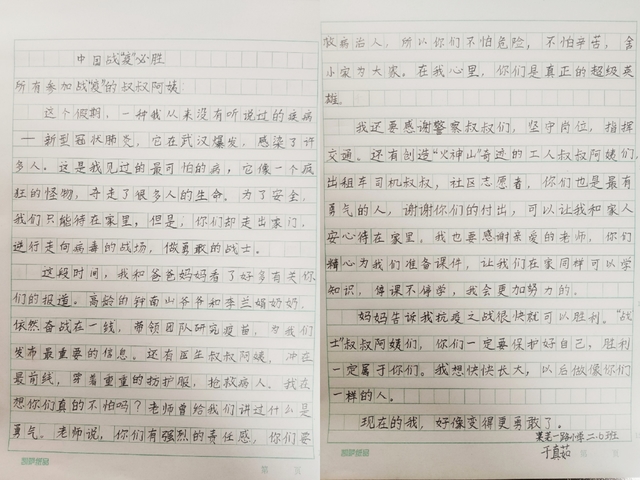 中国战“疫”必胜
所有参加战“疫”的叔叔阿姨
这个假期，一种我从来没有听说过的疾病
——新型冠状肺炎，它在武汉爆发，感染了许
多人。这是我见过的最可怕的病，它像一个疯
狂的怪物，夺走了很多人的生命。为了安全，
我们只能待在家里，但是；你们却走出家门，
逆行走向病毒的战场，做勇敢的战士。
这段时间，我和爸爸妈妈看了好多有关你
们的报道。高龄的钟南山爷爷和李兰娟奶奶，
依然奋战在一线，带领团队研究疫苗，为我们
发布最重要的信息。还有医生叔叔阿姨，冲在
最前线，穿着重重的防护服，抢救病人。我在
想你们真的不怕吗？老师曾给我们讲过什么是
勇气。老师说，你们有强烈的责任感，你们要
救病治人，所以你们不怕危险，不怕辛苦，舍
小家为大家。在我心里，你们是真正的超级英
雄。
我还要感谢警察叔叔们，坚守岗位，指挥
交通。还有创造“火神山”奇迹的工人叔叔阿姨们，
出租车司机叔叔，社区志愿者，你们也是最有
勇气的人，谢谢你们的付出，可以让我和家人
安心待在家里，我也要感谢亲爱的老师，你们
精心为我们准备课件，让我们在家同样可以学
知识，停课不停学，我会更加努力的。
妈妈告诉我抗疫之战很快就可以胜利。“战
士”叔叔阿姨们，你们一定要保护好自己，胜利
一定属于你们。我想快快长大，以后做像你们
一样的人。
现在的我，好像变得更勇敢了。
一路小学二.6班
于真茹